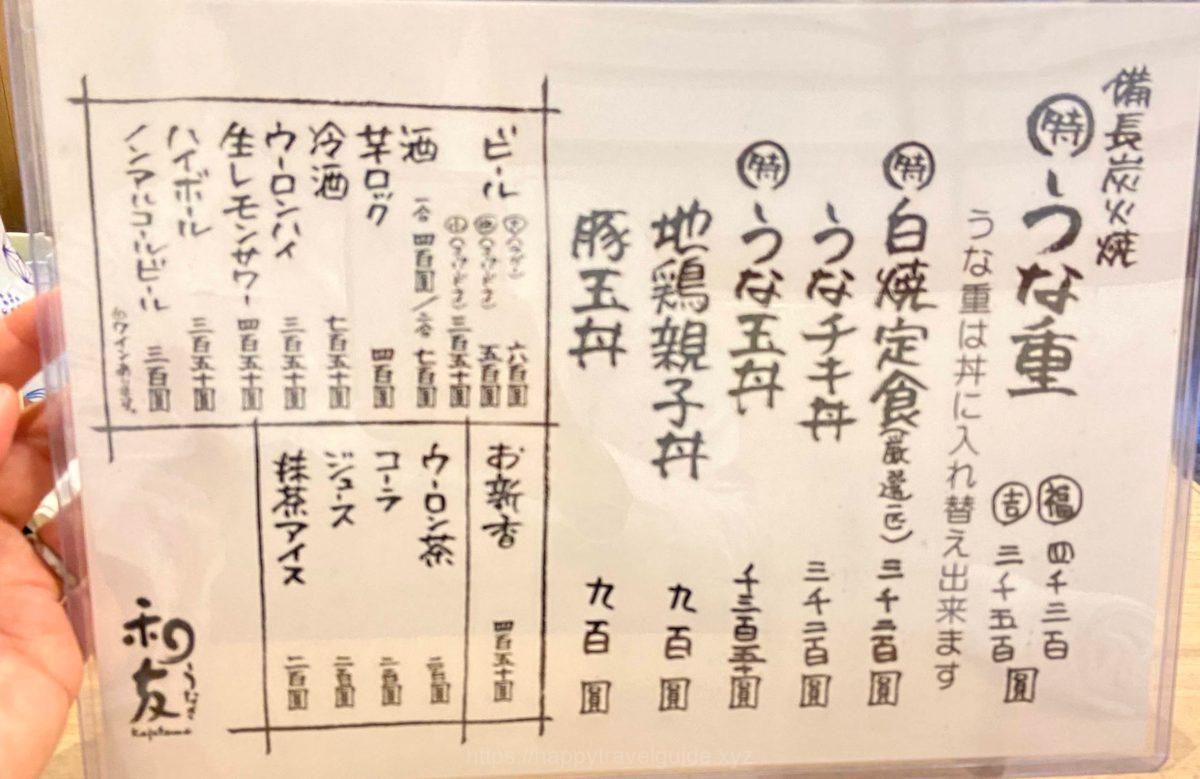 備長炭火焼
特 うな重
福 四千三百
吉 三千五百 圓
うな重は丼に入れ替え出来ます
特 白焼定食(厳選一匹) 三千二百圓
うなチキ丼 三千二百圓
特 うな玉丼 千三百五十圓
地鶏親子丼 九百圓
豚玉丼 九百圓
ビール
大 六百圓
五百圓
小 三百五十圓
酒 一合 四百圓/二合 七百圓
芋ロック 四百圓
冷酒 七百五十圓
ウーロンハイ 三百五十圓
生レモンサワー 四百五十圓
ハイボール 三百五十圓
ノンアルコールビール 三百圓
ワインあります。
お新香 四百五十圓
ウーロン茶 二百圓
コーラ 二百圓
ジュース 二百圓
抹茶アイス 二百圓
うなぎ
和友
Kajitomo
https://happytravelguide.xyz